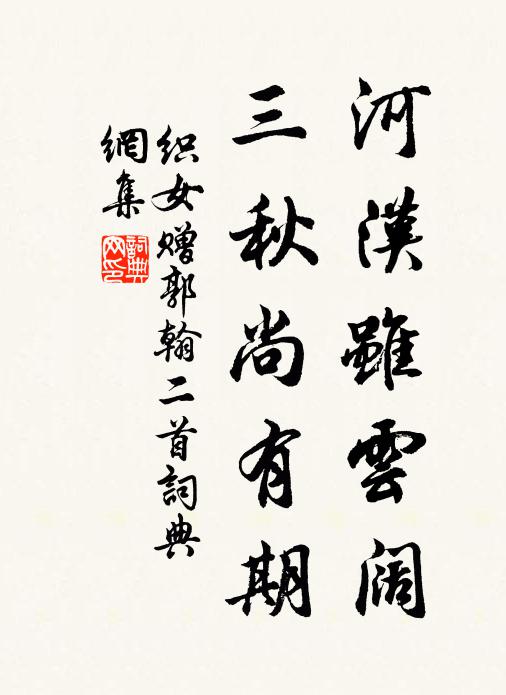 河漢雖雲闊
三秋尚有期
织女赠郭翰二首詞典
網集
詞典网印